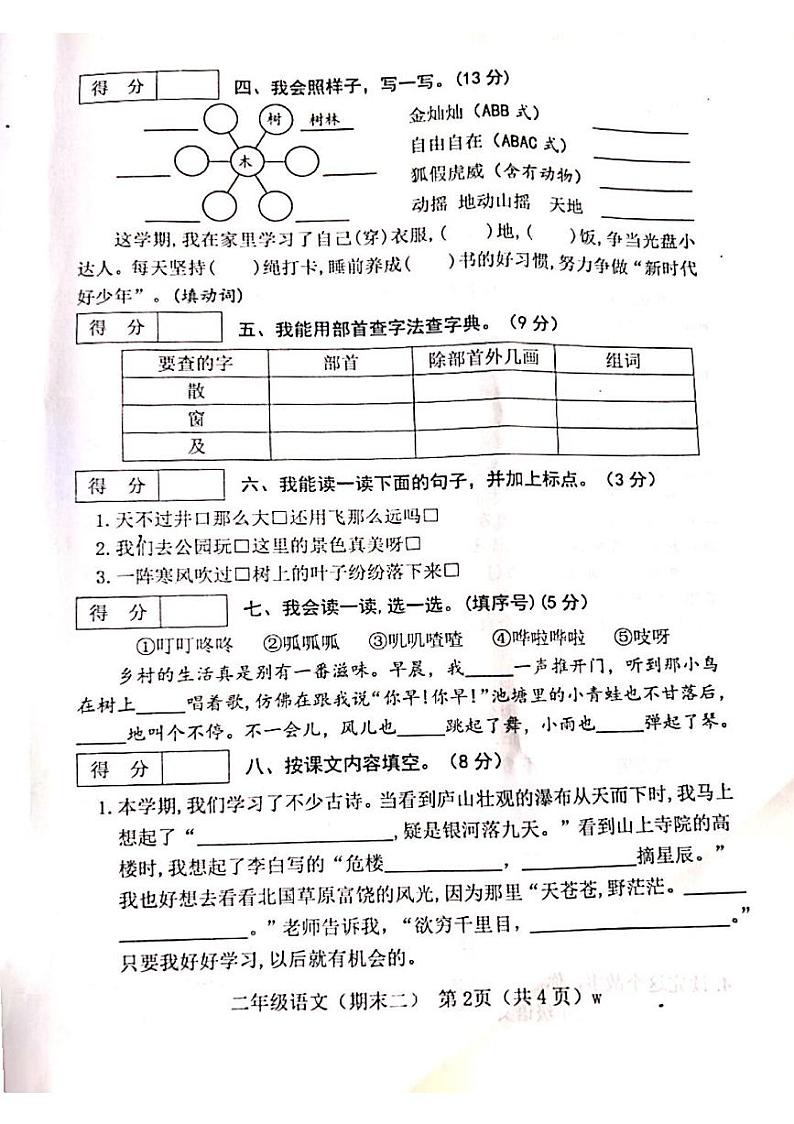 得 分
四、我会照样子，写一写。(13分)
树 树林
木
金灿灿（ABB 式）
自由自在（ABAC 式）
狐假虎威（含有动物）
动摇 地动山摇 天地
这学期,我在家里学习了自己(穿)衣服,( )地,( )饭,争当光盘小
达人。每天坚持( )绳打卡,睡前养成( )书的好习惯,努力争做“新时代
好少年”。(填动词)
得 分
五、我能用部首查字法查字典。（9分）
要查的字 部首 除部首外几画 组词
散
窗
及
得 分
六、我能读一读下面的句子，并加上标点。（3分）
1.天不过井口那么大□还用飞那么远吗□
2.我们去公园玩□这里的景色真美呀□
3.一阵寒风吹过□树上的叶子纷纷落下来□
得 分
七、我会读一读,选一选。(填序号)(5分)
①叮叮咚咚 ②呱呱呱 ③叽叽喳喳 ④哗啦哗啦 ⑤吱呀
乡村的生活真是别有一番滋味。早晨，我_____一声推开门，听到那小鸟
在树上_____唱着歌,仿佛在跟我说“你早!你早!”池塘里的小青蛙也不甘落后，
_____地叫个不停。不一会儿，风儿也_____跳起了舞，小雨也_____弹起了琴。
得 分
八、按课文内容填空。（8分）
1.本学期,我们学习了不少古诗。当看到庐山壮观的瀑布从天而下时,我马上
想起了“__________________,疑是银河落九天。”看到山上寺院的高
楼时,我想起了李白写的“危楼___________，___________摘星辰。”
我也好想去看看北国草原富饶的风光,因为那里“天苍苍,野茫茫。______
____________。”老师告诉我，“欲穷千里目，__________________。”
只要我好好学习,以后就有机会的。
二年级语文（期末二） 第2页（共4页）w